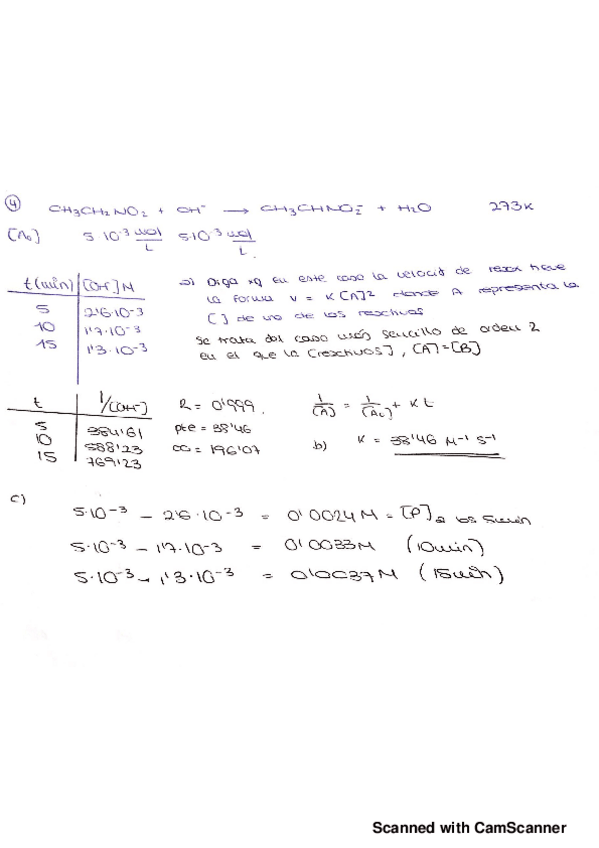 ④ CH3CH2NO2 + OH⁻ → CH3CHNO2⁻ + H2O 273K
[A0] 5·10⁻³ mol/L 5·10⁻³ mol/L
t(min) [OH⁻] M
5 2'6·10⁻³
10 1'7·10⁻³
15 1'3·10⁻³
a) Diga xq en este caso la velocid de reacc tiene
la forma v = K[A]² donde A representa la
[ ] de uno de los reactivos
Se trata del caso más sencillo de orden 2
en el que la [reactivos], [A]=[B]
t 1/[OH⁻]
5 384'61
10 588'23
15 769'23
R = 0'999.
pte = 38'46
oo = 196'07
1/[A] = 1/[A0] + Kt
b) K = 38'46 M⁻¹ s⁻¹
c)
5·10⁻³ – 2'6·10⁻³ = 0'0024M = [P] a los 5min
5·10⁻³ – 1'7·10⁻³ = 0'0033M (10min)
5·10⁻³ – 1'3·10⁻³ = 0'0037M (15min)
Scanned with CamScanner